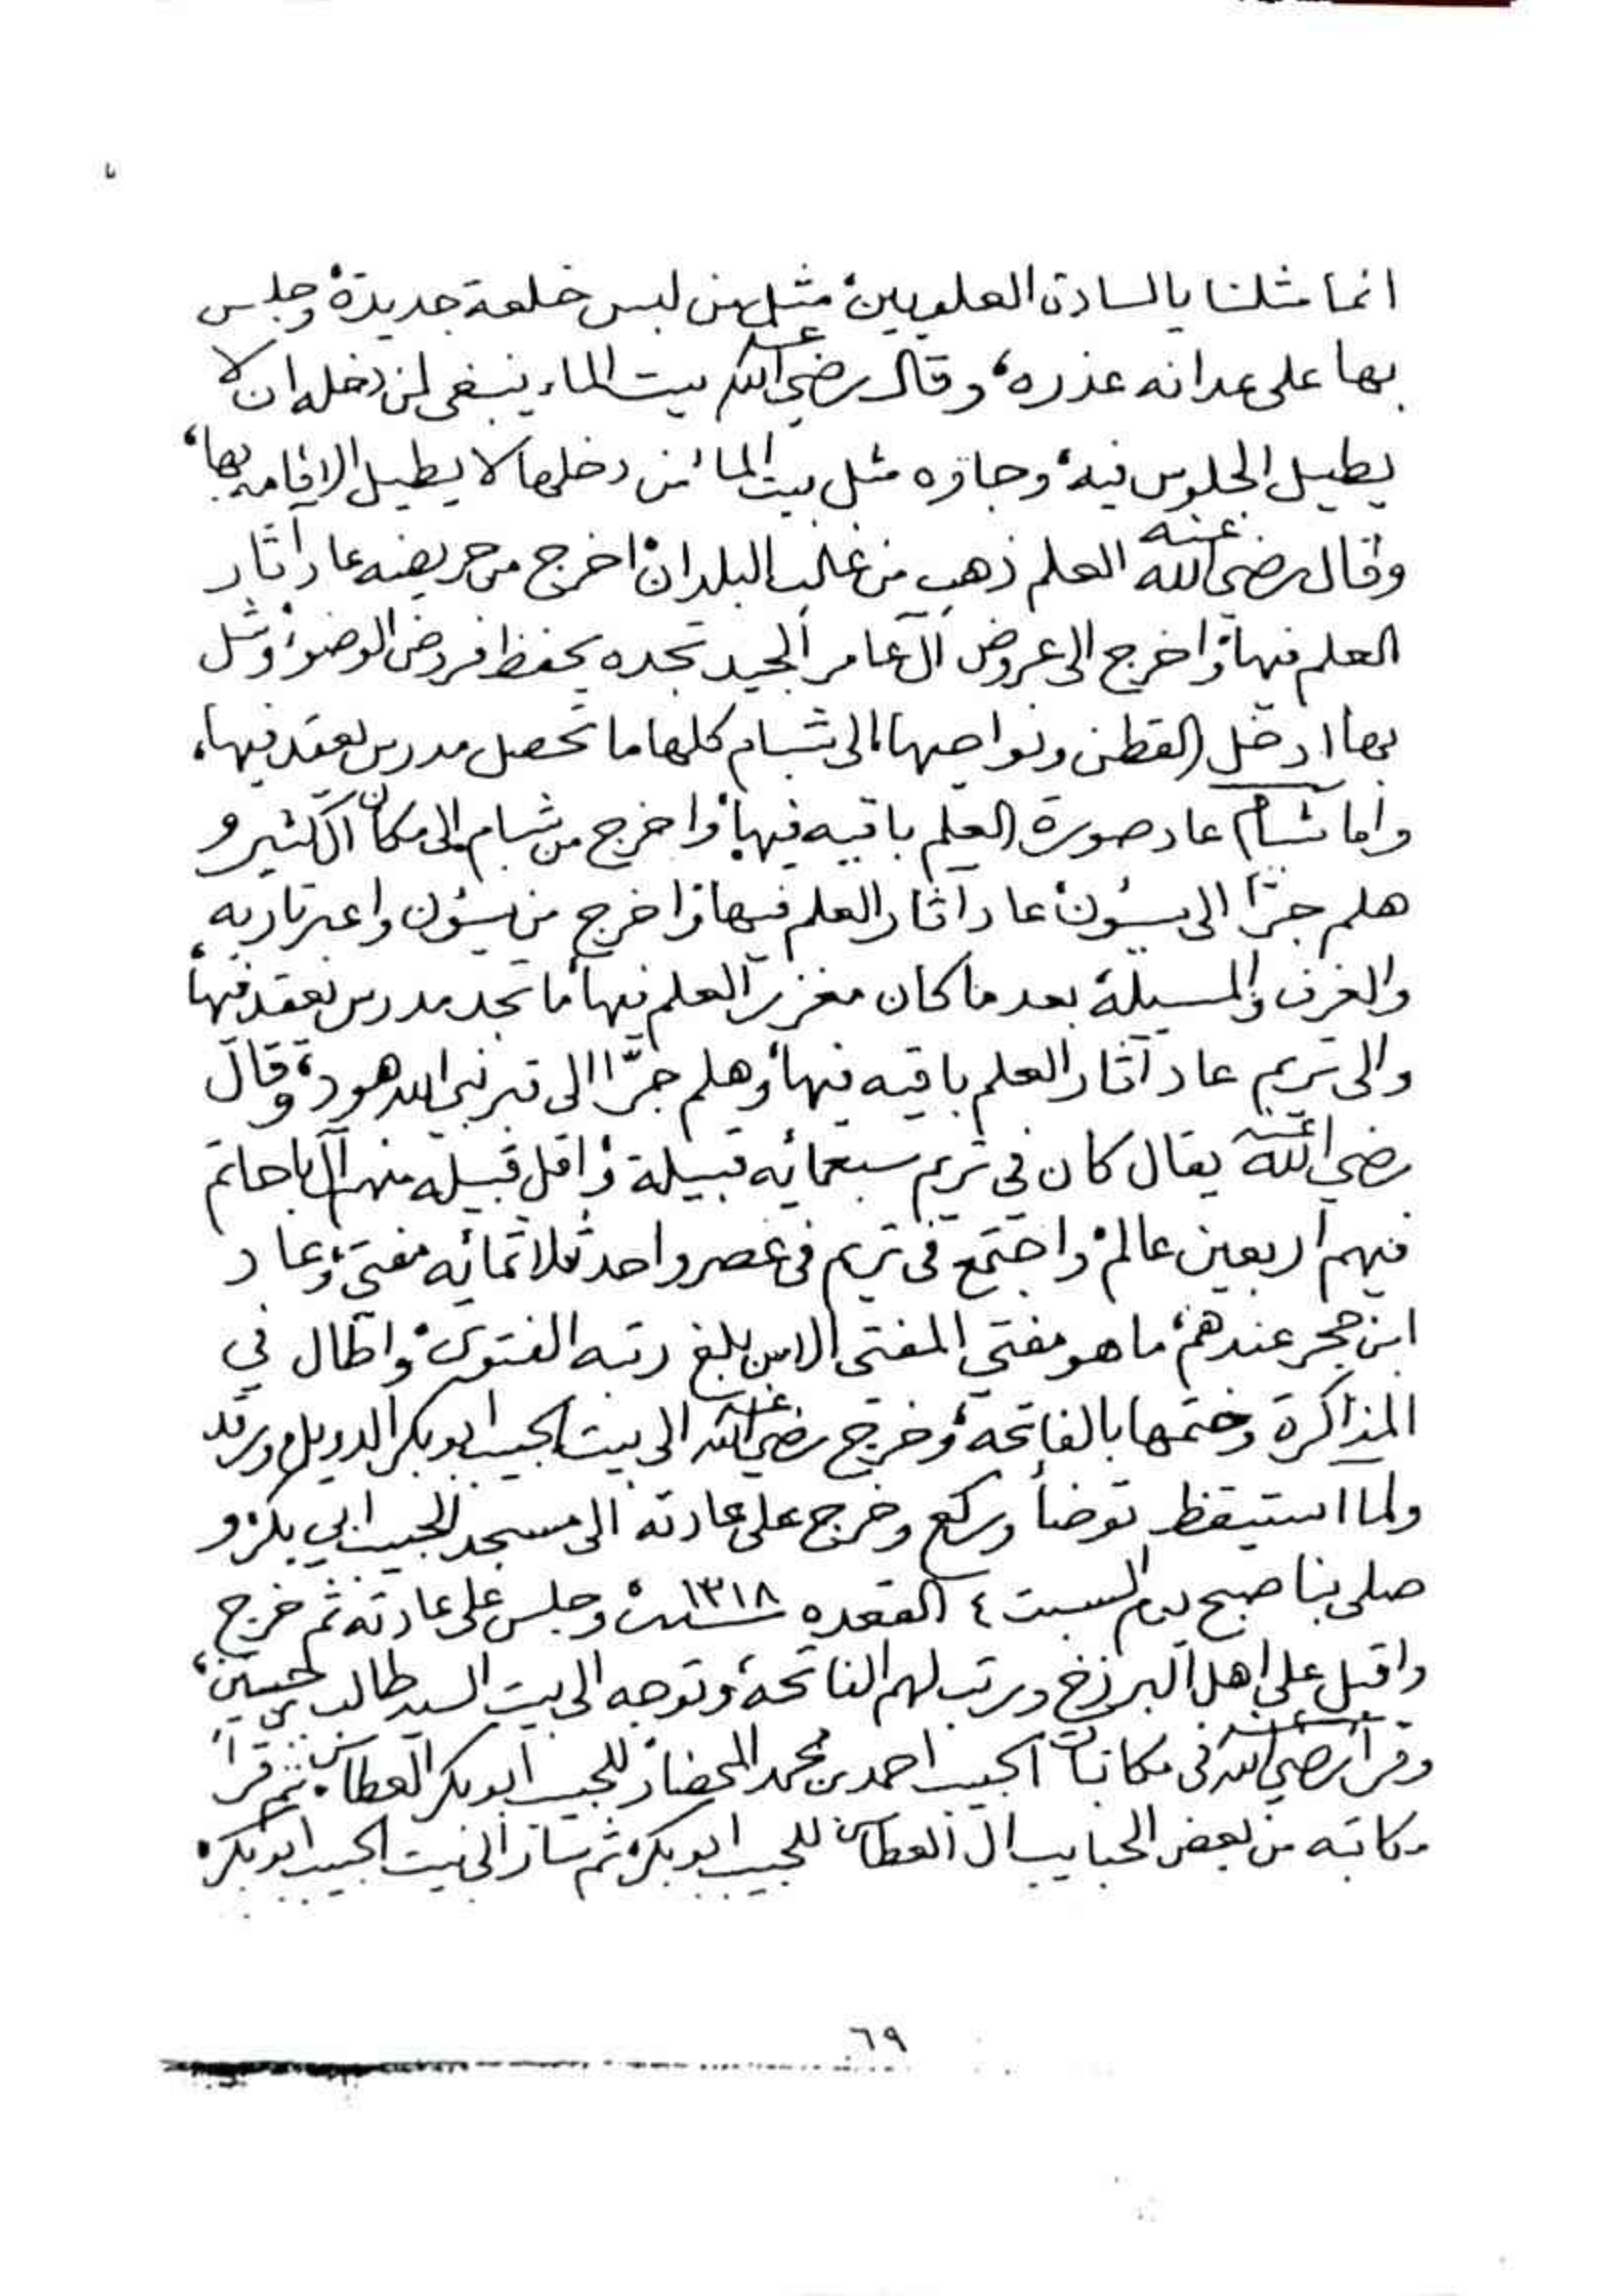 انما مثلنا يالسادة العلويين، مثل من لبس خلعة جديدة، وجلس
بها على عدانه عذره، وقال رضي الله عنه بيت الماء ينبغي لمن دخله ان لا
يطيل الجلوس فيه، وجاوه مثل بيت الماء من دخلها لا يطيل الاقامه بها،
وقال رضي الله عنه العلم ذهب من غالب البلدان، اخرج من حريضه عاد آثار
العلم فيها، واخرج الى عروض آل عامر الجيد تجده يحفظ فروض الوضوء، وشل
بها ادخل القطن ونواحيها، الى شبام كلها ما تحصل مدرس يعقد فيها،
واما شبام عاد صورة العلم باقيه فيها، واخرج من شبام الى مكان آل كثير و
هلم جرًّا الى سيئون، عاد اثار العلم فيها، واخرج من سيئون واعبر تاربه
والغرف والمسيلة، بعد ما كان مغزر العلم فيها، ما تجد مدرس يعقد فيها
والى تريم عاد آثار العلم باقيه فيها، وهلم جرًّا الى قبر نبي الله هود، وقال
رضي الله عنه يقال كان في تريم سبعمائه قبيلة، واقل قبيله منهم آل باحاتم
فيهم اربعين عالم، واجتمع في تريم في عصر واحد ثلاثمائه مفتي، وعاد
ابن حجر عندهم، ما هو مفتي المفتى الا من بلغ رتبه الفتوى، واطال في
المذاكرة وختمها بالفاتحه، وخرج رضي الله عنه الى بيت الحبيب ابوبكر الدويل، ورقد
ولما استيقظ توضأ وركع وخرج على عادته الى مسجد الحبيب ابي بكر، و
صلى بنا صبح يوم السبت ٤ القعده سنة ١٣١٨، وجلس على عادته ثم خرج
واقبل على اهل البرزخ ورتب لهم الفاتحة، وتوجه الى بيت السيد طالب بن حسين،
وقرأ رضي الله عنه في مكاتبات الحبيب احمد بن محمد المحضار، للحبيب ابوبكر العطاس، ثم قرأ
مكاتبه من بعض الحبايب ال العطاس، للحبيب ابوبكر، ثم سار الى بيت الحبيب ابوبكر،
٦٩